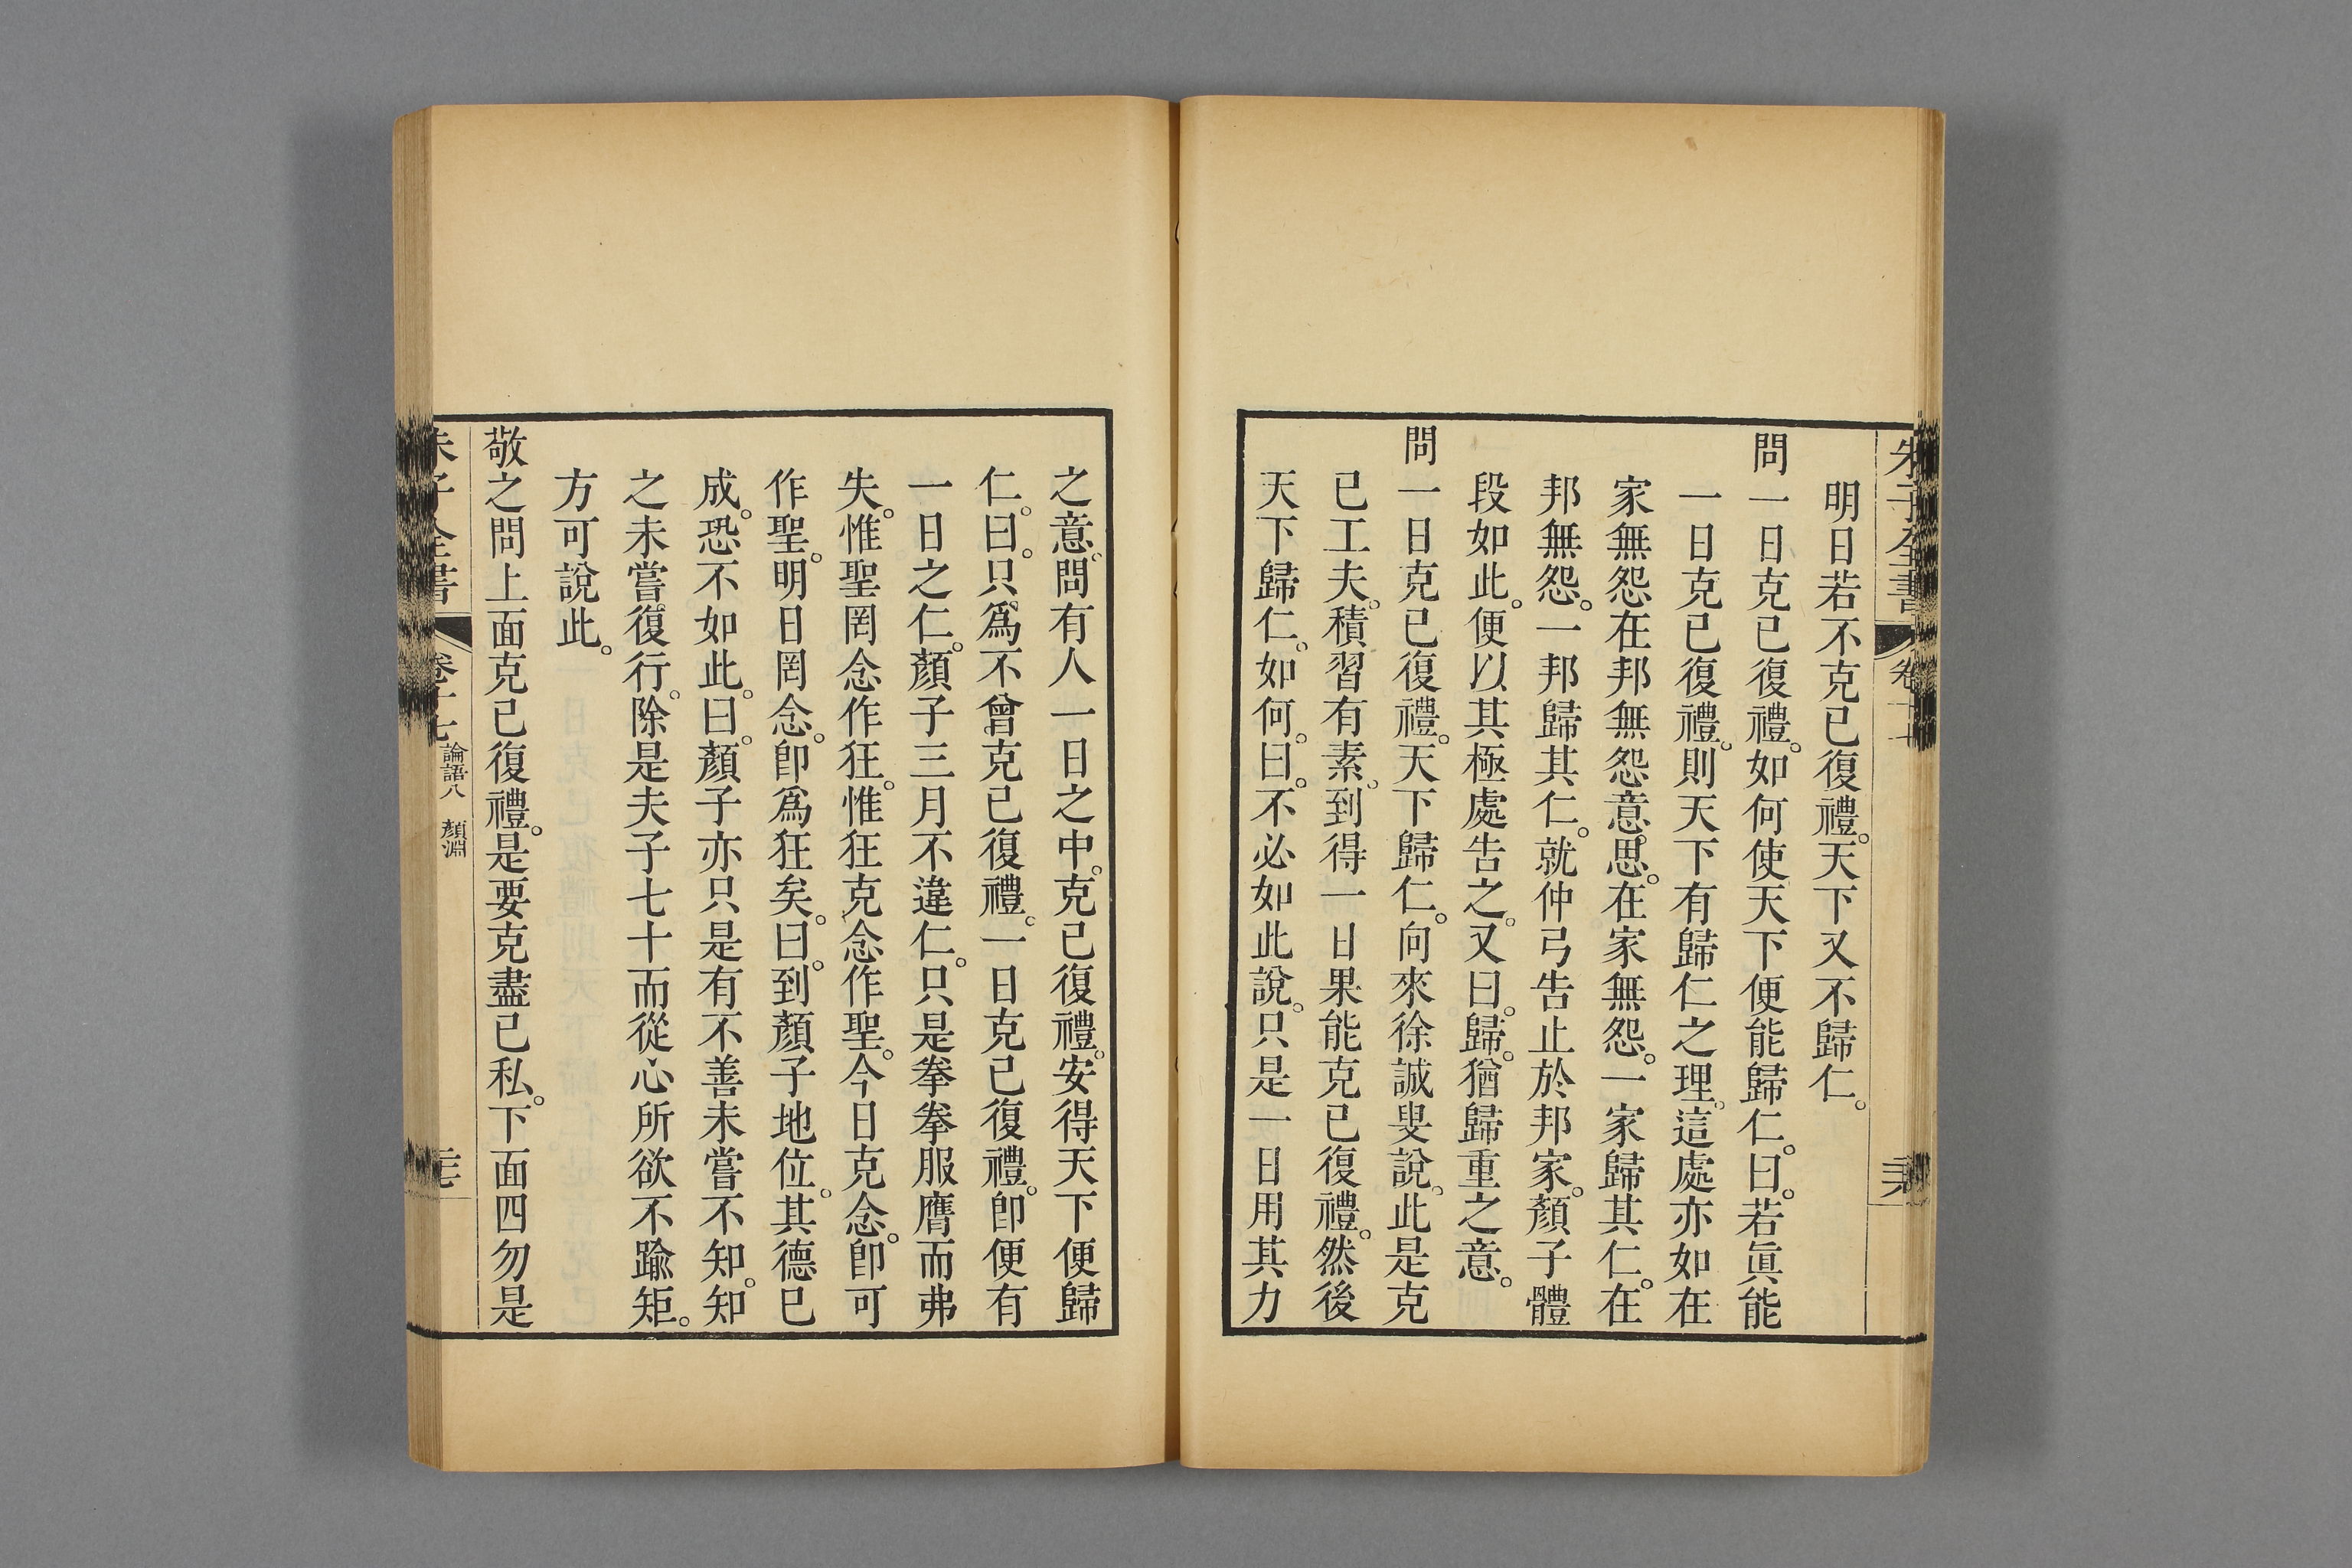 明日若不克已復禮。天下又不歸仁。
問一日克已復禮。如何使天下便能歸仁。曰。若眞能
一日克已復禮。則天下有歸仁之理。這處亦如在
家無怨在邦無怨意思。在家無怨。一家歸其仁。在
邦無怨。一邦歸其仁。就仲弓告止於邦家。顏子體
段如此。便以其極處告之。又曰。歸。猶歸重之意。
問一日克已復禮。天下歸仁。向來徐誠叟說。此是克
已工夫。積習有素。到得一日果能克已復禮。然後
天下歸仁。如何。曰。不必如此說。只是一日用其力
之意。問有人一日之中。克已復禮。安得天下便歸
仁。曰。只爲不曾克已復禮。一日克已復禮。卽便有
一日之仁。顏子三月不違仁。只是拳拳服膺而弗
失。惟聖罔念作狂。惟狂克念作聖。今日克念。卽可
作聖。明日罔念。卽爲狂矣。曰。到顏子地位。其德已
成。恐不如此。曰。顏子亦只是有不善未嘗不知。知
之未嘗復行。除是夫子七十而從心所欲不踰矩。
方可說此。
敬之問上面克已復禮。是要克盡已私。下面四勿是
朱子全書
卷十七
論語八 顏淵